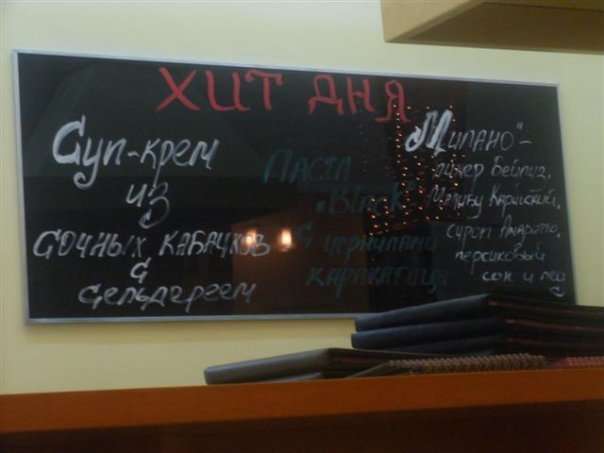 ХИТ ДНЯ
Суп-крем
из
сочных кабачков
с
сельдереем
Паста
"Black"
с чернилами
каракатицы
"Милано"-
ликер Бейлиз,
Малибу Карибский,
сироп Амаретто,
персиковый
сок и лед